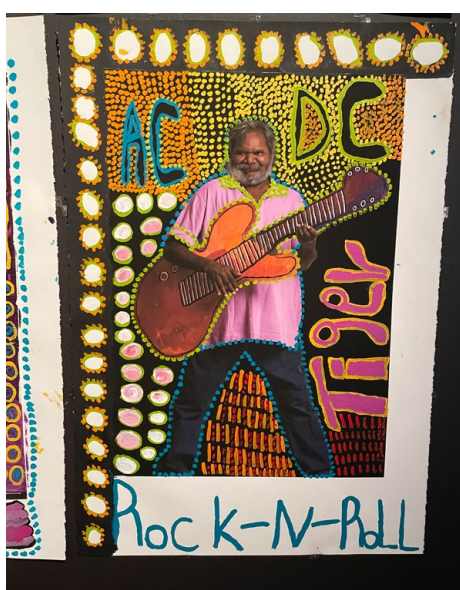 AC DC
Tiger
ROCK-N-ROLL